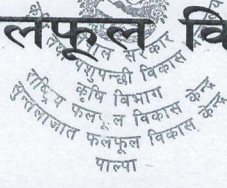 लफूल वि
नेपाल सरकार
पशुपन्छी विकास
कृषि विभाग
राष्ट्रिय फलफूल विकास केन्द्र
सुन्तलाजात फलफूल विकास केन्द्र
पाल्पा